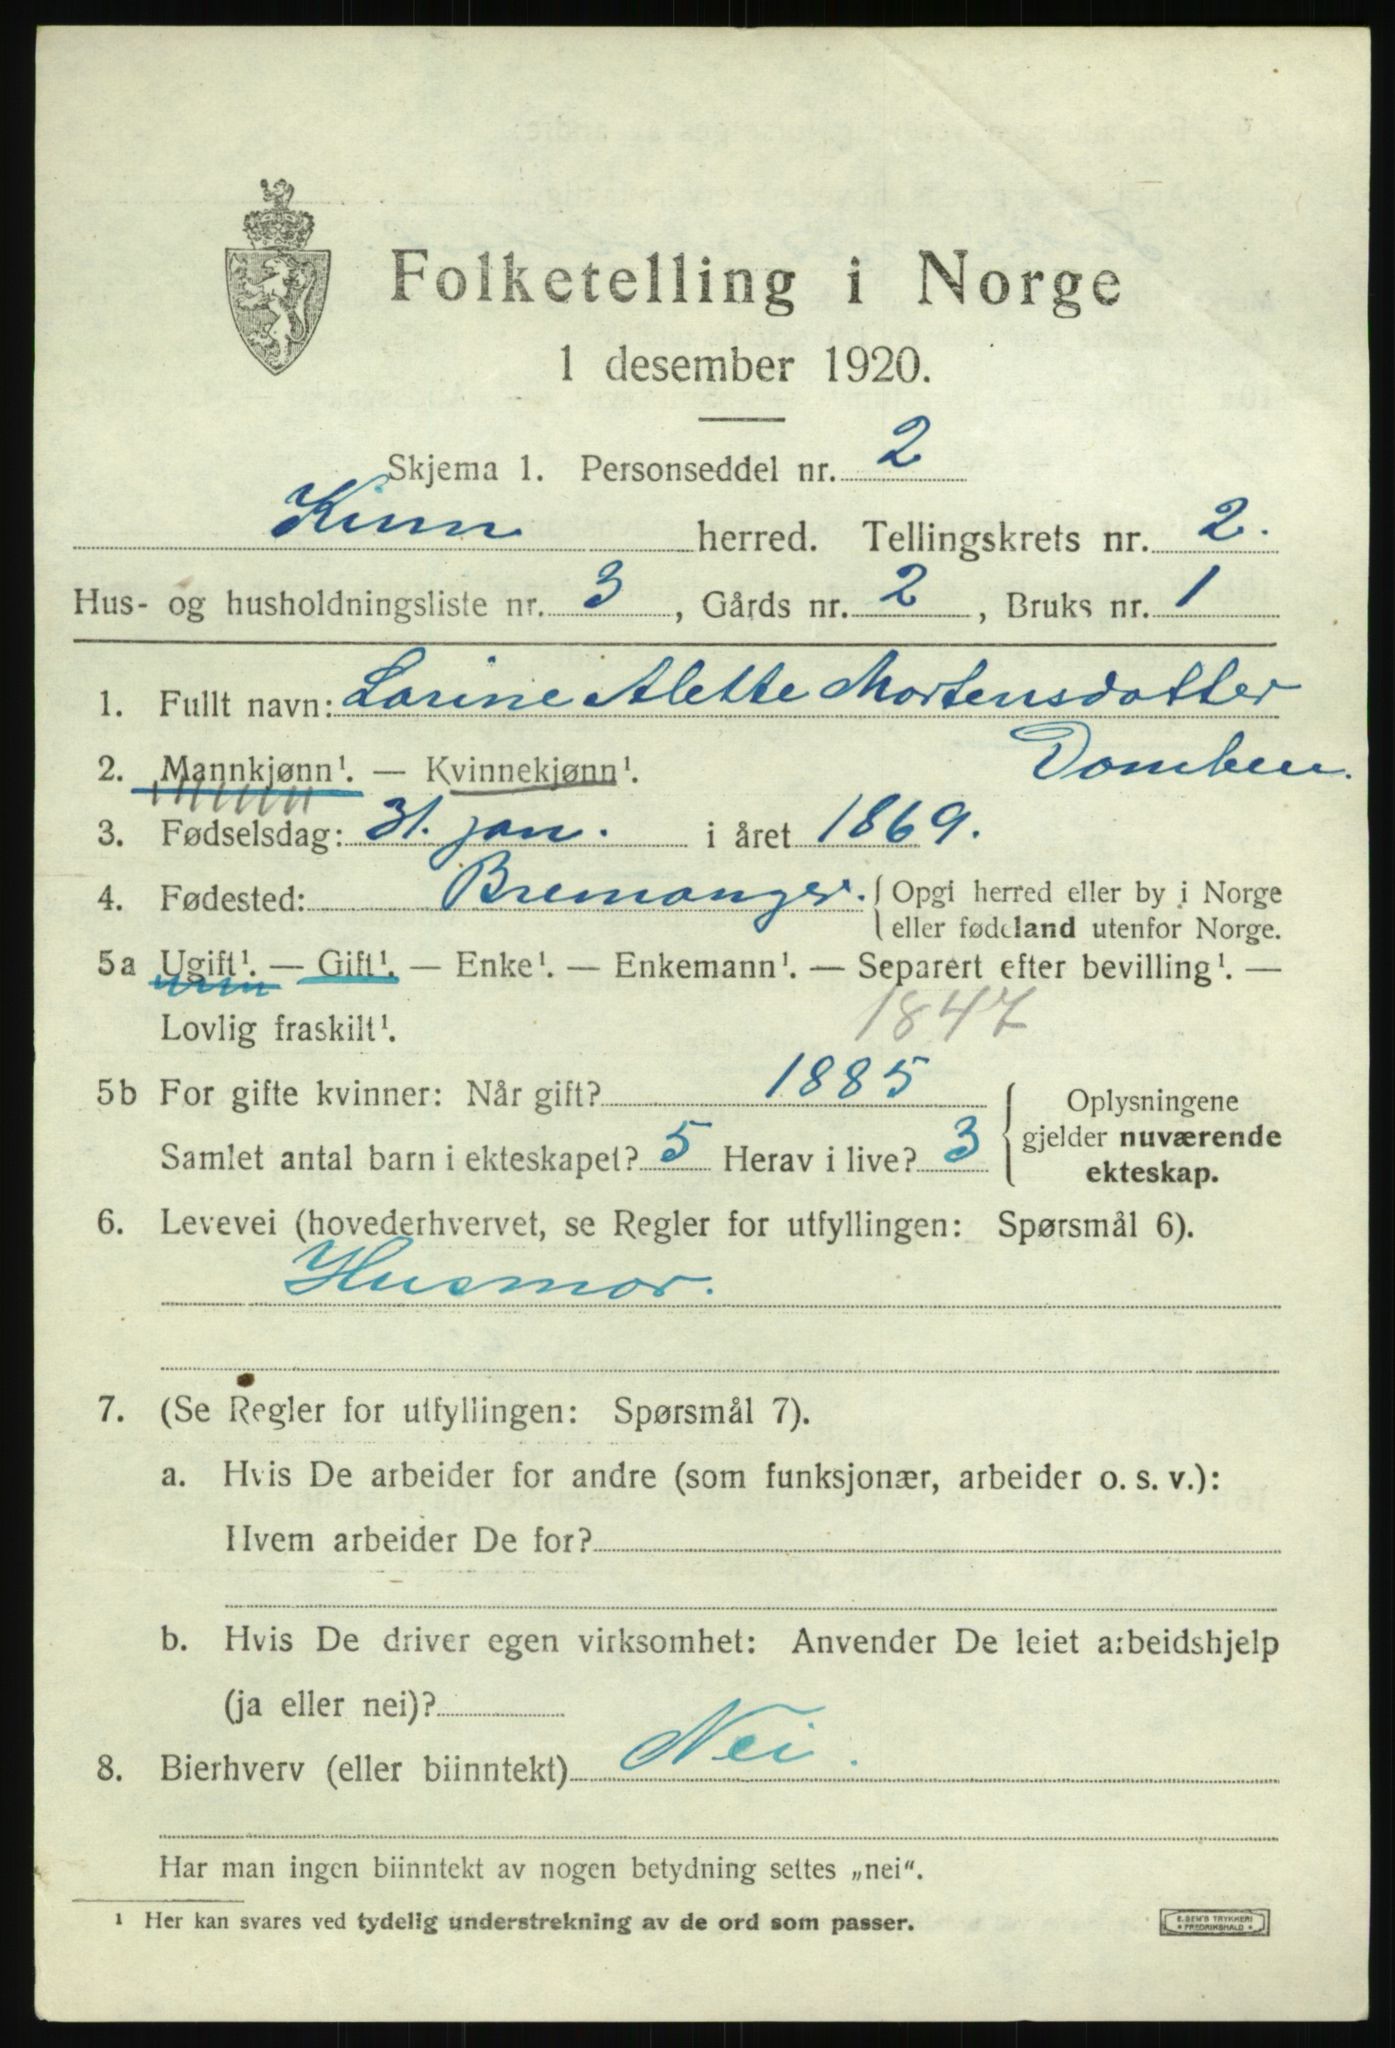 Folketelling i Norge
1 desember 1920.
Skjema 1. Personseddel nr. 2
Kinn herred. Tellingskrets nr. 2.
Hus- og husholdningsliste nr. 3, Gårds nr. 2, Bruks nr. 1
1. Fullt navn: Larine Alette Mortensdatter
Domben.
2. Mannkjønn¹. — Kvinnekjønn¹.
3. Fødselsdag: 31. jan. i året 1869.
4. Fødested: Bremanger. Opgi herred eller by i Norge
eller fødeland utenfor Norge.
5a Ugift¹. — Gift¹. — Enke¹. — Enkemann¹. — Separert efter bevilling¹. —
Lovlig fraskilt¹. 1847
5b For gifte kvinner: Når gift? 1885
Samlet antal barn i ekteskapet? 5 Herav i live? 3
Oplysningene
gjelder nuværende
ekteskap.
6. Levevei (hovederhvervet, se Regler for utfyllingen: Spørsmål 6).
Husmor.
7. (Se Regler for utfyllingen: Spørsmål 7).
a. Hvis De arbeider for andre (som funksjonær, arbeider o. s. v.):
Hvem arbeider De for?
b. Hvis De driver egen virksomhet: Anvender De leiet arbeidshjelp
(ja eller nei)?
8. Bierhverv (eller biinntekt) Nei.
Har man ingen biinntekt av nogen betydning settes „nei".
¹ Her kan svares ved tydelig understrekning av de ord som passer.
E. SEM'S TRYKKERI
* FREDRIKSHALD *